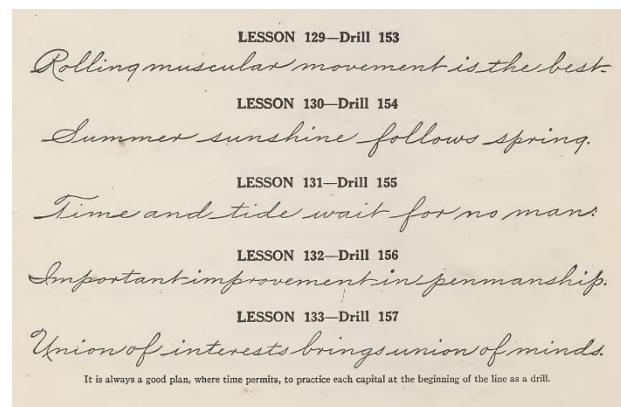 LESSON 129—Drill 153
Rolling muscular movement is the best.
LESSON 130—Drill 154
Summer sunshine follows spring.
LESSON 131—Drill 155
Time and tide wait for no man.
LESSON 132—Drill 156
Important improvement in penmanship.
LESSON 133—Drill 157
Union of interests brings union of minds.
It is always a good plan, where time permits, to practice each capital at the beginning of the line as a drill.